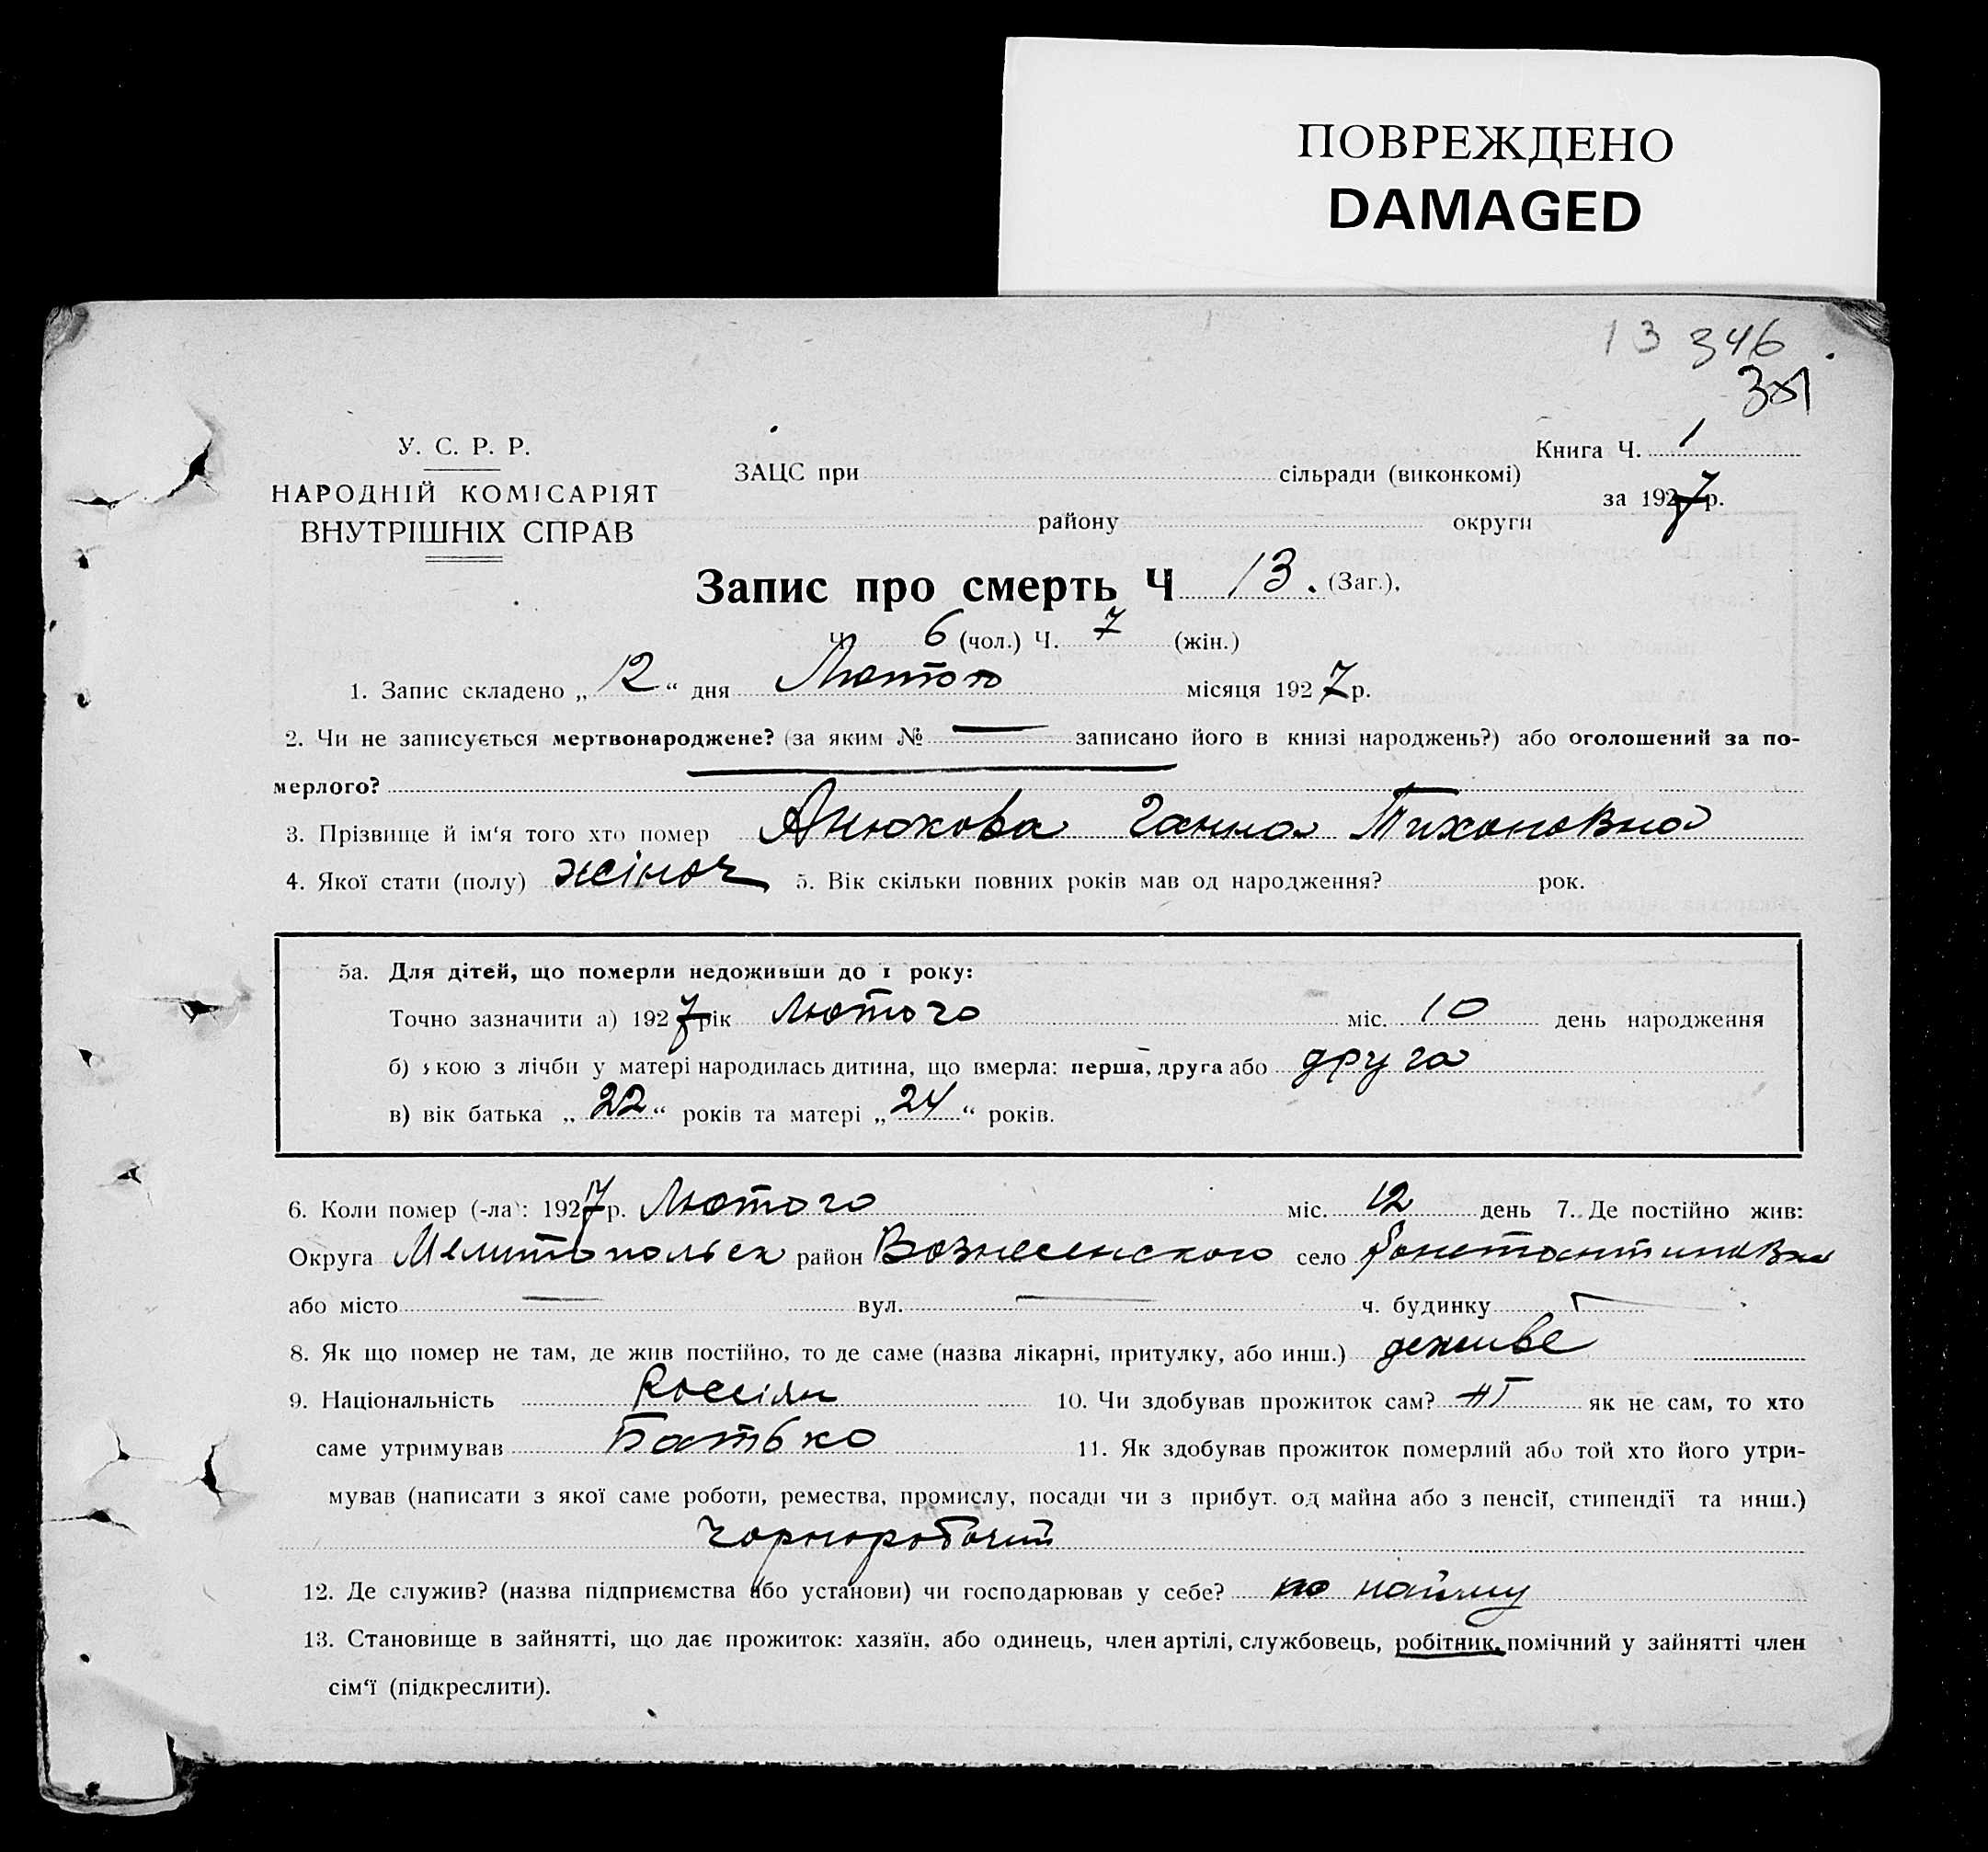 ПОВРЕЖДЕНО
DAMAGED
13 346
Книга Ч. 1
У. С. Р. Р.
ЗАЦС при сільради (виконкомі)
НАРОДНІЙ КОМІСАРІЯТ
за 1927 р.
ВНУТРІШНІХ СПРАВ
району округи
Запис про смерть Ч 13. (Заг.),
Ч. 6 (чол.) Ч. 7 (жін.)
1. Запис складено „ 12 “ дня Лютого місяця 1927 р.
2. Чи не записується мертвонароджене? (за яким № — записано його в книзі народжень?) або оголошений за по-
мерлого? —
3. Прізвище й ім‘я того хто помер Анюхова Ганна Тихоновна
4. Якої стати (полу) жіноч 5. Вік скільки повних років мав од народження? рок.
5а. Для дітей, що померли недоживши до 1 року:
Точно зазначити а) 1927 рік Лютого міс. 10 день народження
б) якою з лічби у матері народилась дитина, що вмерла: перша, друга або друга
в) вік батька „ 22 “ років та матері „ 24 “ років.
6. Коли помер (-ла): 1927 р. Лютого міс. 12 день 7. Де постійно жив:
Округа Мелитопольск район Вознесенского село Констонтиновка
або місто — вул. — ч. будинку —
8. Як що помер не там, де жив постійно, то де саме (назва лікарні, притулку, або инш.) деживе
9. Національність Россіян 10. Чи здобував прожиток сам? НІ як не сам, то хто
саме утримував Батько 11. Як здобував прожиток померлий або той хто його утри-
мував (написати з якої саме роботи, ремества, промислу, посади чи з прибут. од майна або з пенсії, стипендії та инш.)
Чорноробочий
12. Де служив? (назва підприємства або установи) чи господарював у себе? по найму
13. Становище в зайнятті, що дає прожиток: хазяїн, або одинець, член артілі, службовець, робітник, помічний у зайнятті член
сім‘ї (підкреслити).